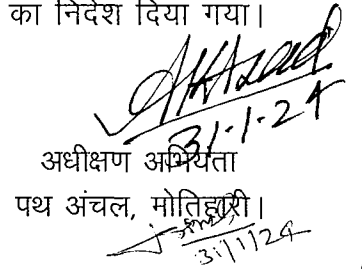 का निदेश दिया गया।
AKAzad
31.1.24
अधीक्षण अभियंता
पथ अंचल, मोतिहारी।
31/1/24